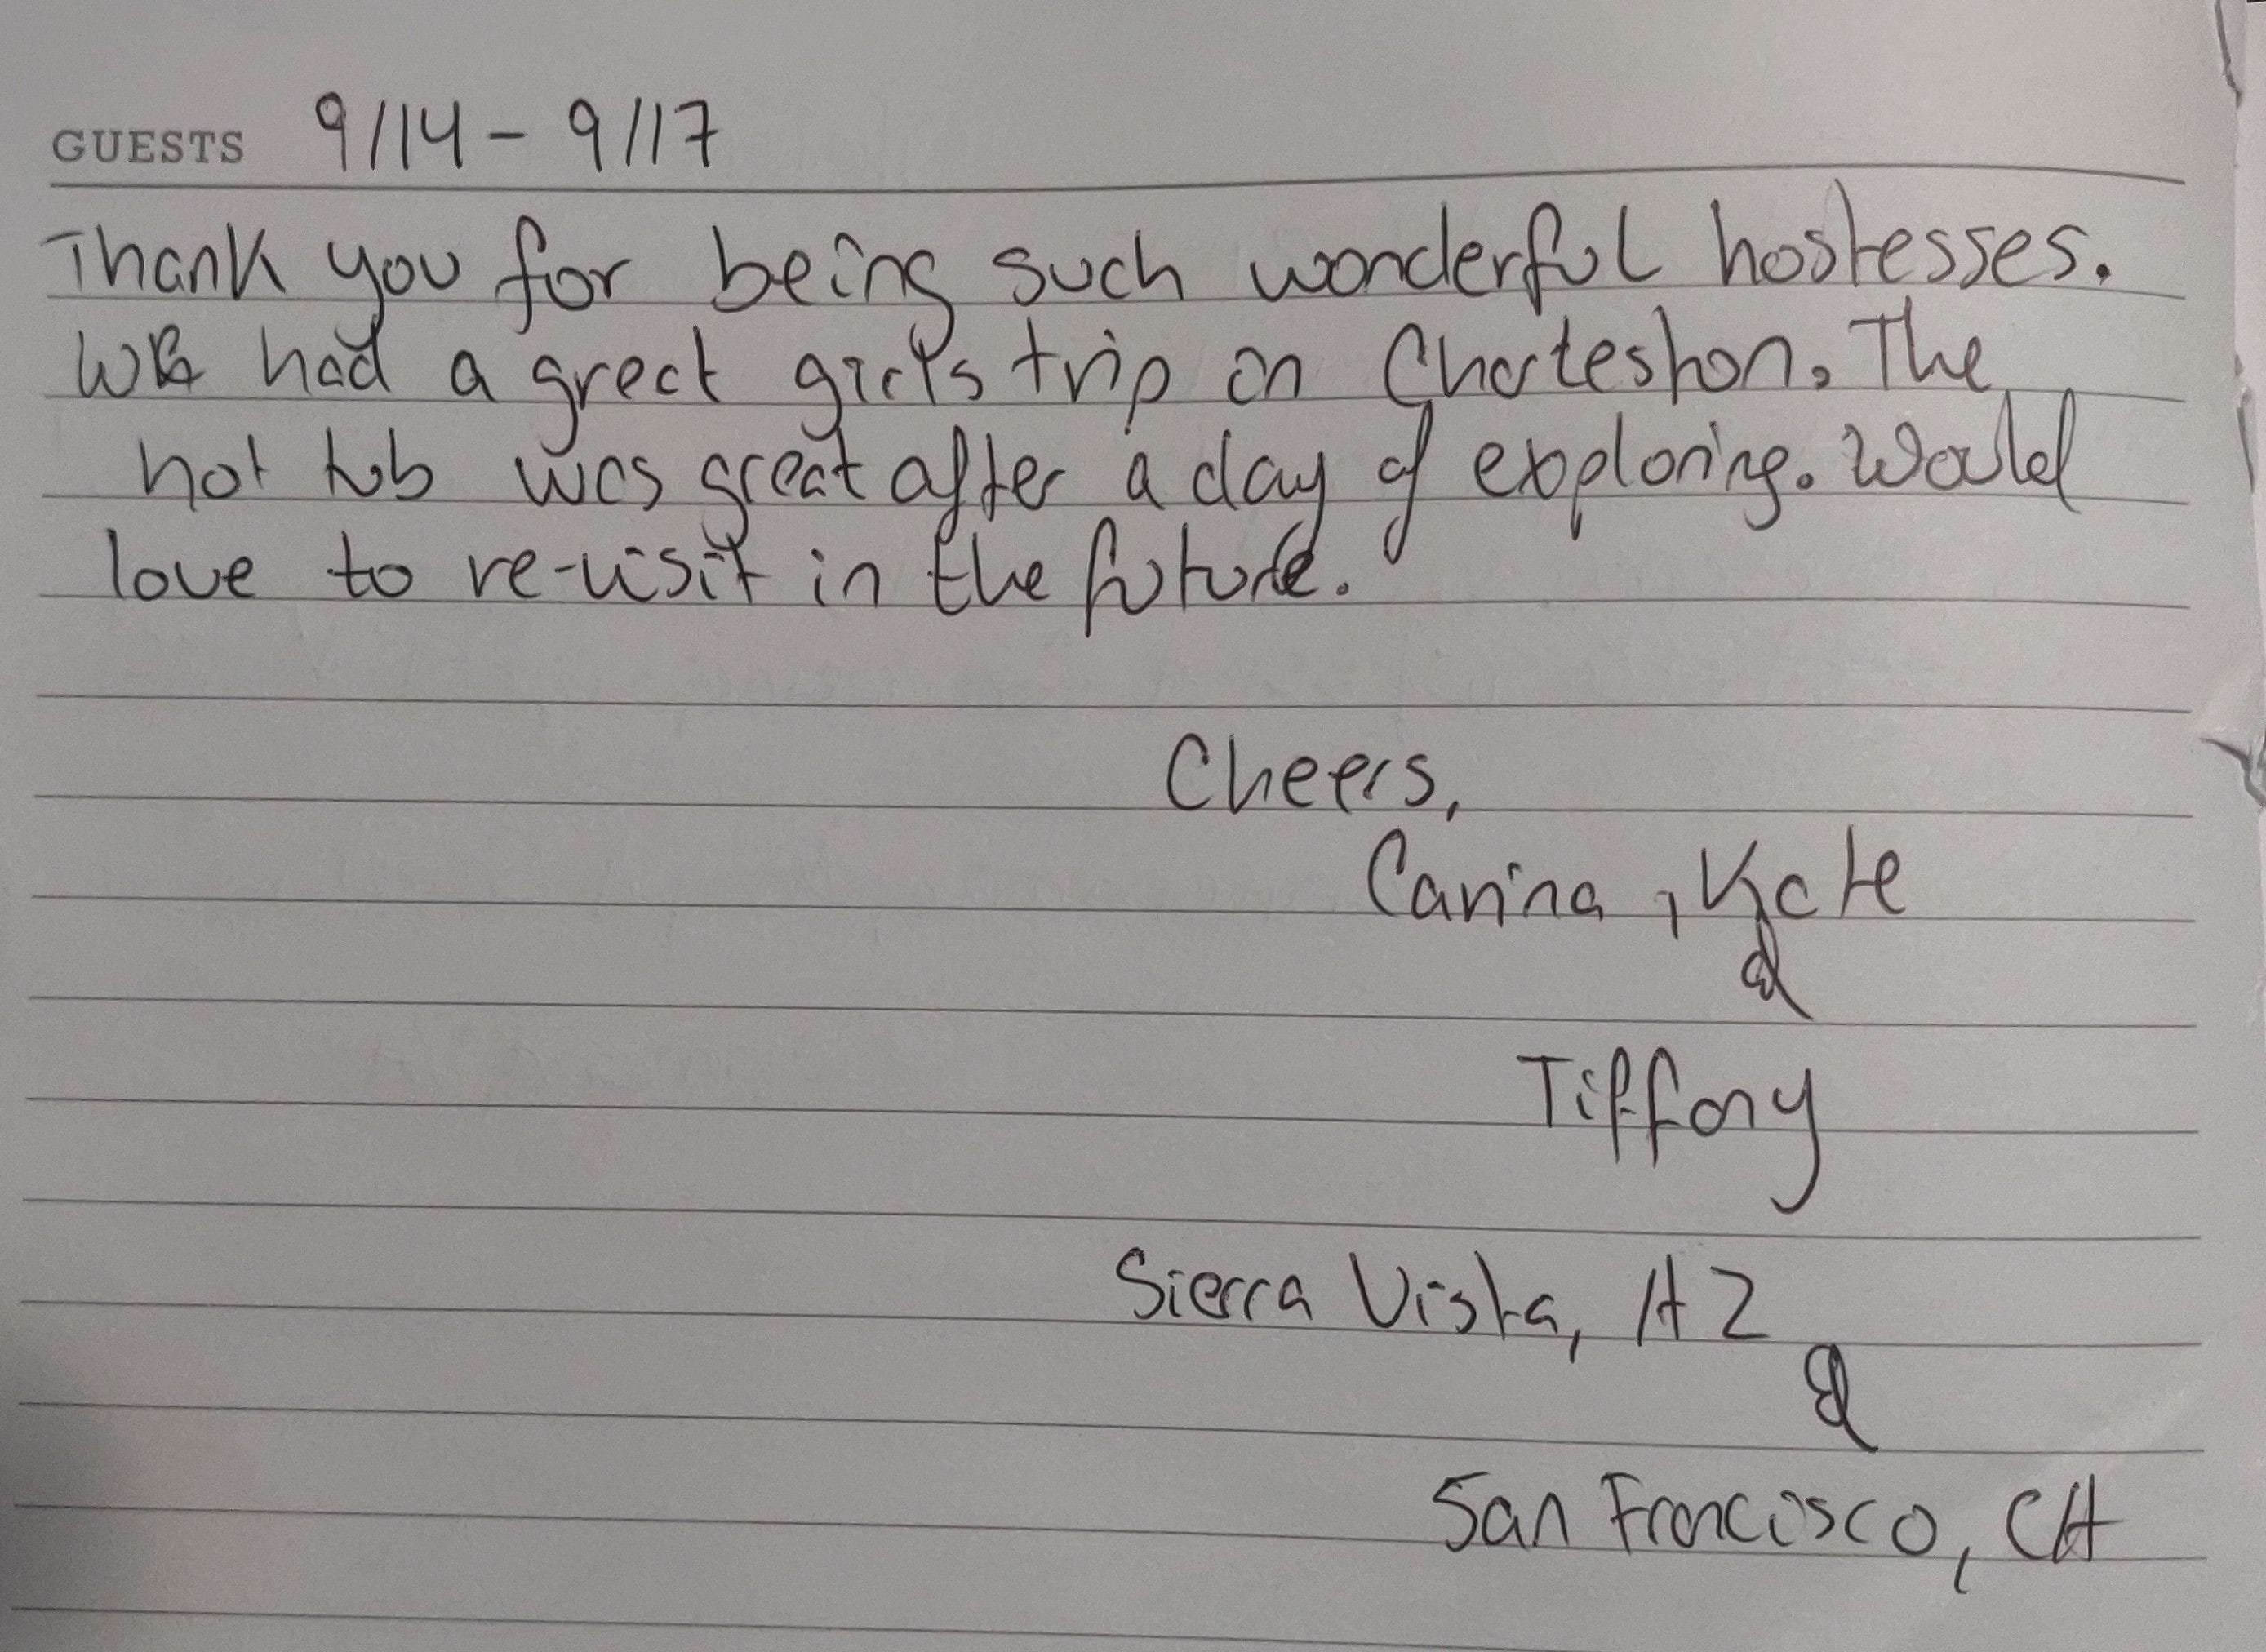 GUESTS 9/14 - 9/17
Thank you for being such wonderful hostesses.
We had a great girls trip in Charleston. The
hot tub was great after a day of exploring. Would
love to re-visit in the future.
Cheers,
Carina, Kate
&
Tiffany
Sierra Vista, AZ
&
San Francisco, CA